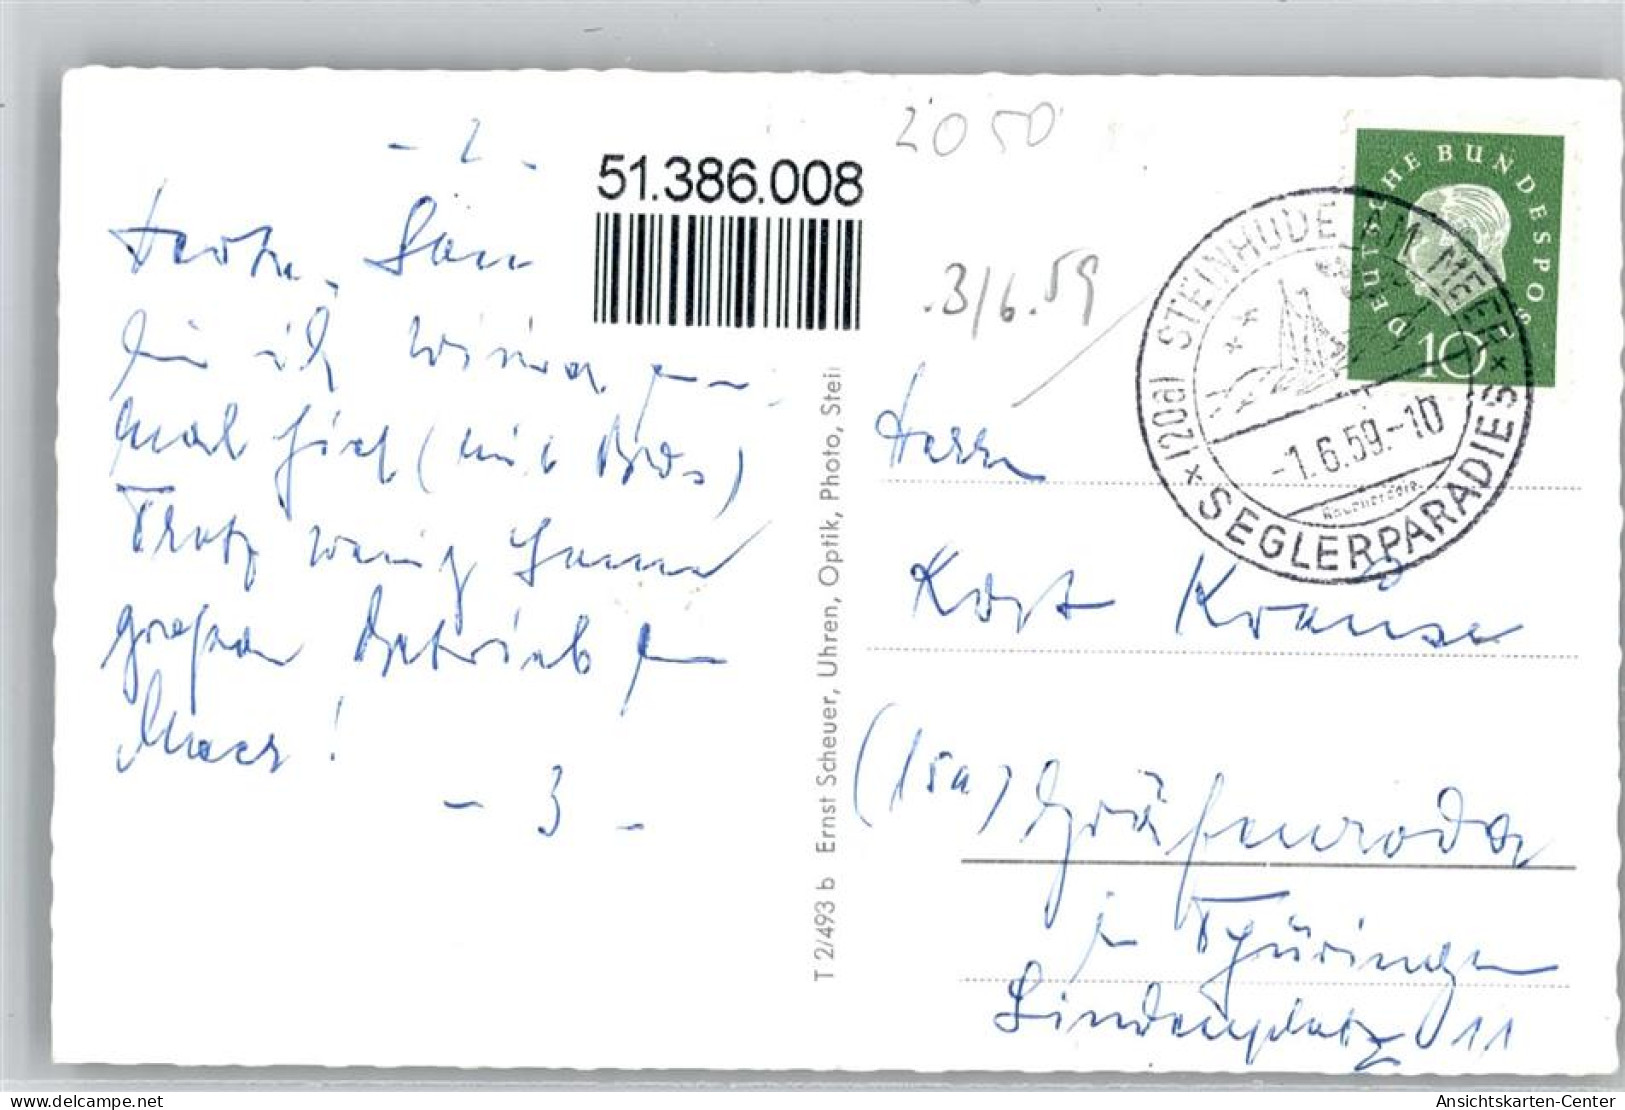 - 2 -
51.386.008
2050
3/6.59
DEUTSCHE BUNDESPOST
10
(20a) STEINHUDE AM MEER
-1.6.59.-10
* SEGLERPARADIES *
bin ich wieder
mal hier (mit
Trotz wenig Sonne
großer Betrieb am
Meer!
- 3 -
T 2/493 b Ernst Scheuer, Uhren, Optik, Photo, Stei
Herrn
Kort Krause
(15a) Gräfenroda
in Thüringen
Lindenplatz 11
delcampe.net
Ansichtskarten-Center